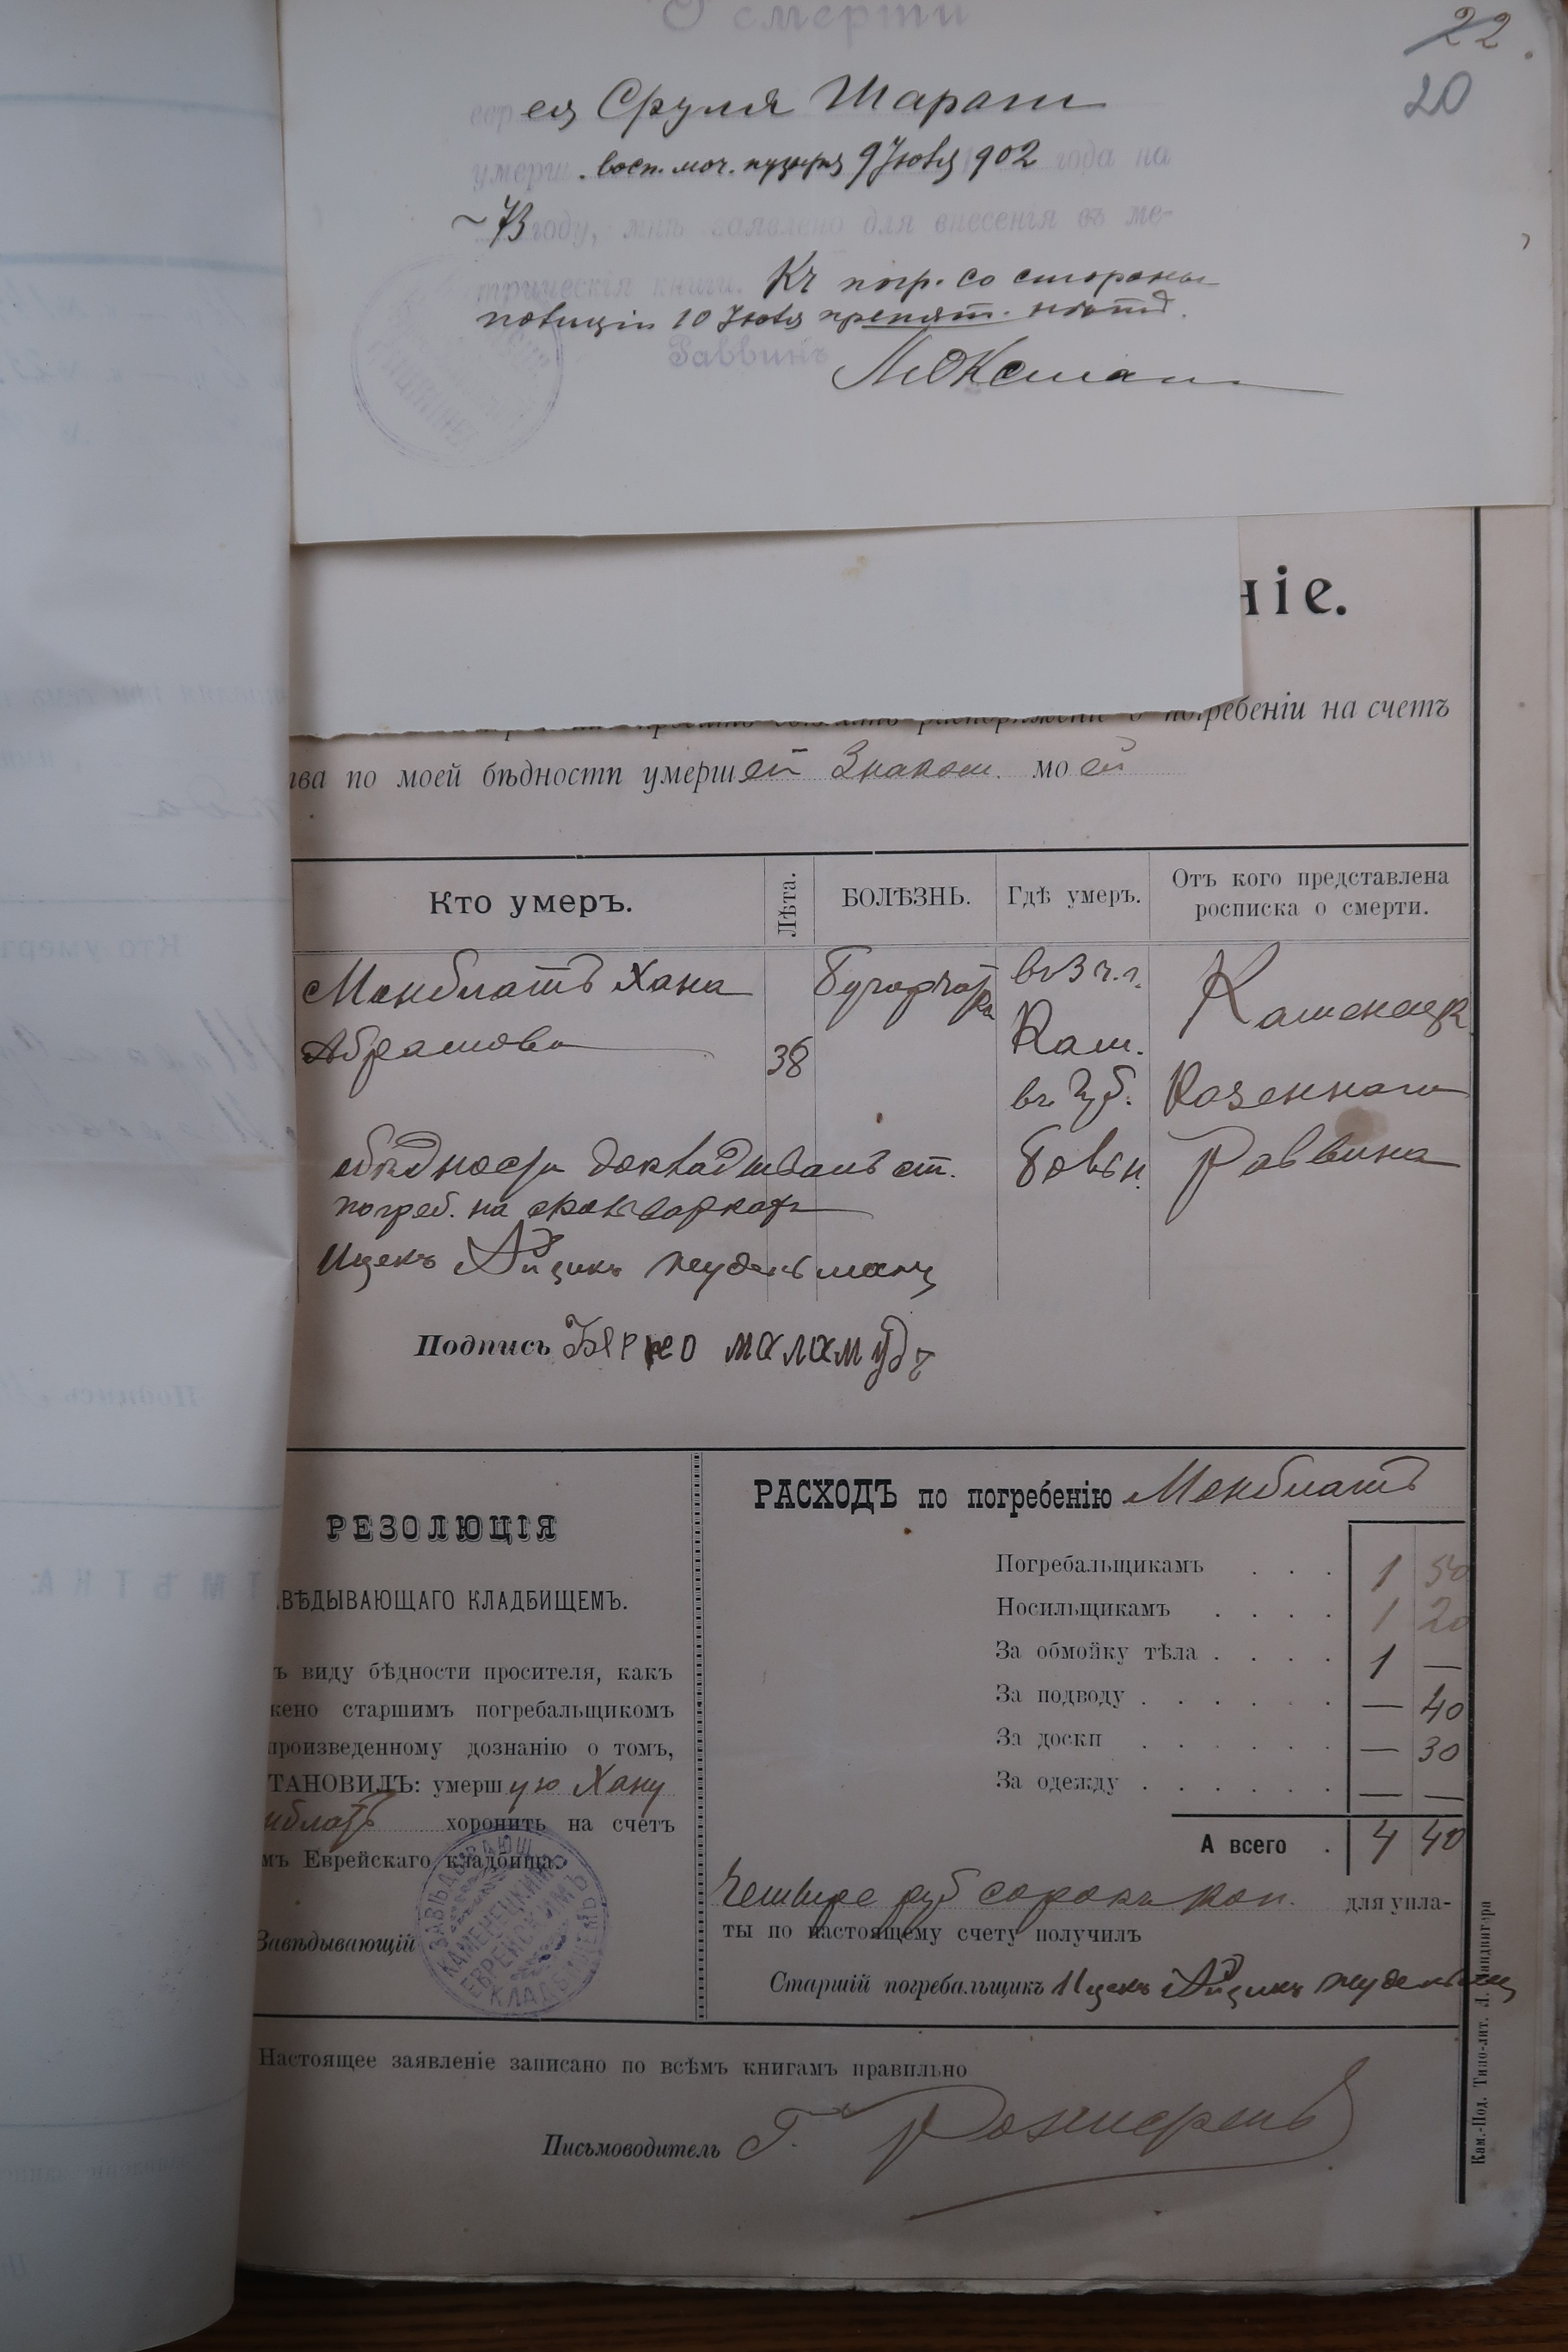 О смерти
22.
20
ея Сруля Шараги
умерш . восп. моч. пузыря 9 Июня 902 года на
73 году, мнѣ заявлено для внесенія въ ме-
трическія книги. Къ погр. со стороны
полиціи 10 Июня препят.
Раввинъ
ніе.
погребеніи на счетъ
тва по моей бѣдности умершей Знаком. моей
Кто умеръ.
Лѣта.
БОЛѢЗНЬ.
Гдѣ умеръ.
Отъ кого представлена
росписка о смерти.
Манблатъ Хана
Абрамова
38
Бугорчатка
въ 3 ч. г.
Кам.
въ Губ.
Больн.
Каменецк
Казеннаго
Раввина
о бѣдности докладывалъ ст.
погреб. на
Ицекъ Айцикъ
Подпись Берко маламудъ
РЕЗОЛЮЦІЯ
ВѢДЫВАЮЩАГО КЛАДБИЩЕМЪ.
ъ виду бѣдности просителя, какъ
жено старшимъ погребальщикомъ
произведенному дознанію о томъ,
ТАНОВИЛЪ: умершую Хану
нблатъ хоронить на счетъ
мъ Еврейскаго кладбища.
Завѣдывающій
ЗАВѢДЫВАЮЩ
КАМЕНЕЦКИМЪ
ЕВРЕЙСКИМЪ
КЛАДБИЩЕМЪ
РАСХОДЪ по погребенію Манблатъ
Погребальщикамъ . . . 1 50
Носильщикамъ . . . . 1 20
За обмойку тѣла . . . . 1 —
За подводу . . . . . . — 40
За доски . . . . . . — 30
За одежду . . . . . . — —
А всего . 4 40
Четыре руб сорокъ коп. для упла-
ты по настоящему счету получилъ
Старшій погребальщикъ Ицекъ Айцикъ
Настоящее заявленіе записано по всѣмъ книгамъ правильно
Письмоводитель Г.
Кам.-Под. Типо-лит. Л. Ландвигера